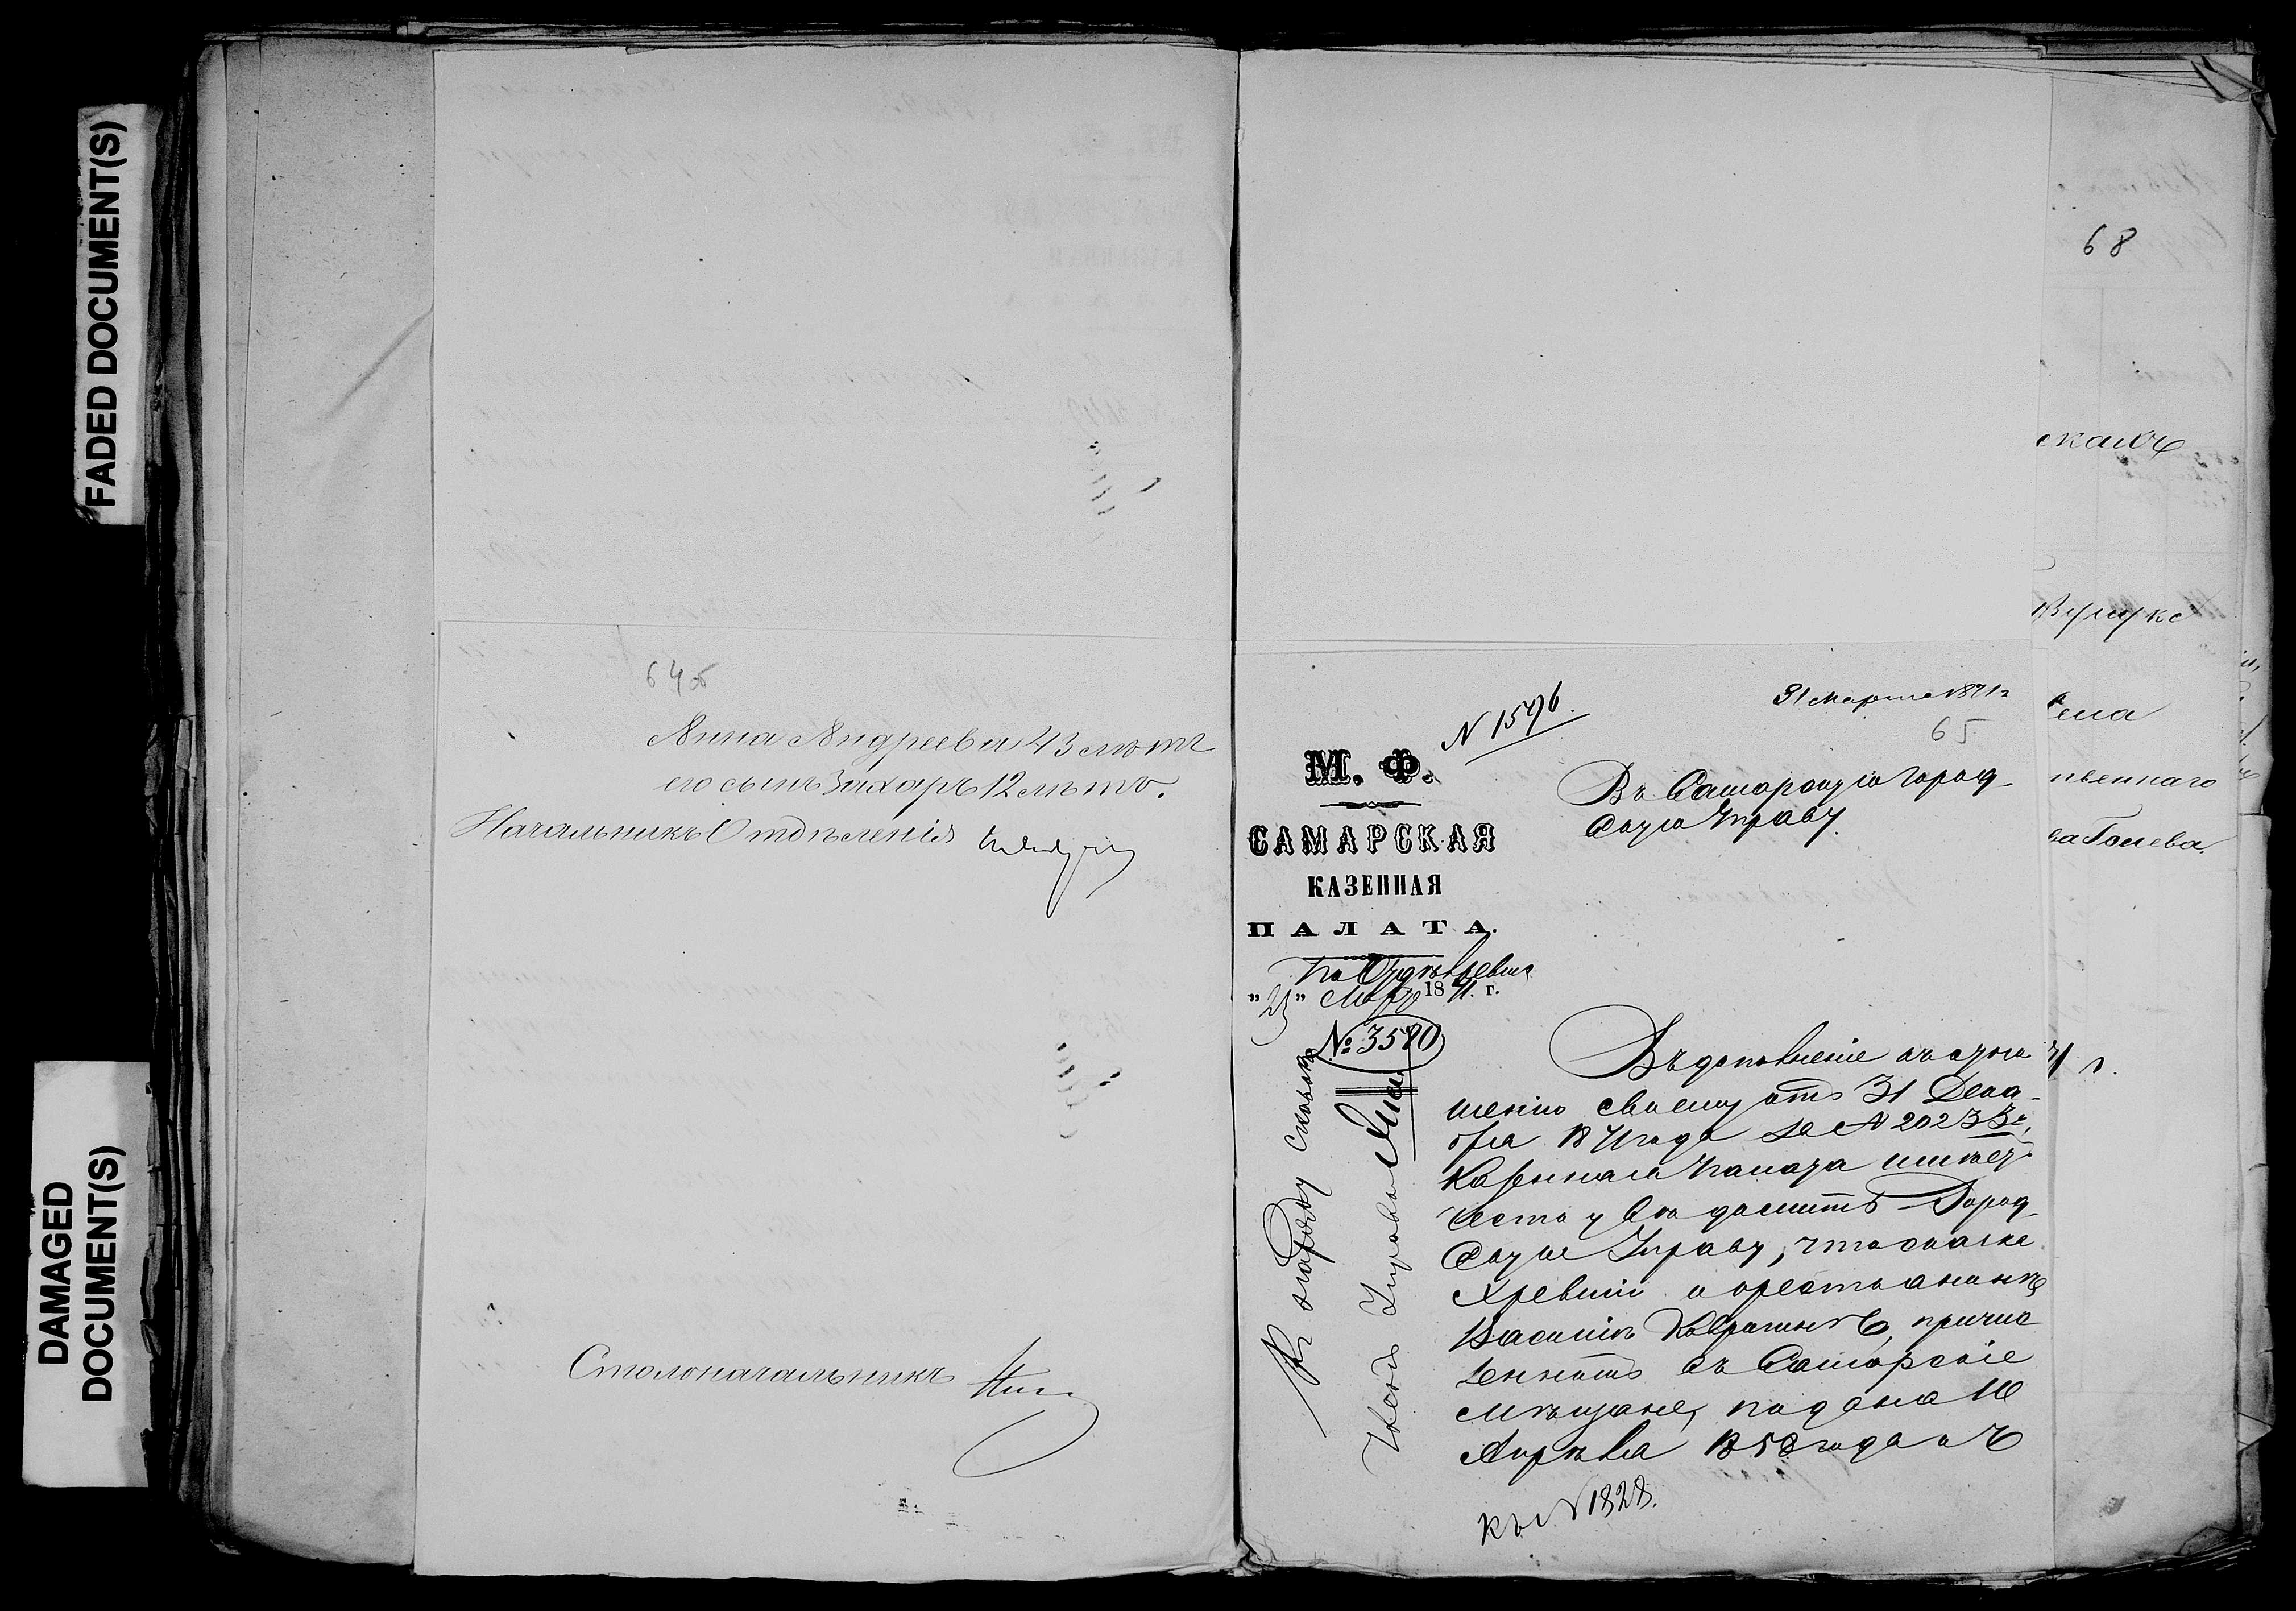 FADED DOCUMENT(S)
DAMAGED
DOCUMENT(S)
64об
Анна Андреева 43 лѣтъ
его сынъ Захаръ 12 лѣтъ.
Начальникъ Отдѣленія
Столоначальникъ
N 1596.
31 Марта 1871 г
65
М. Ф.
САМАРСКАЯ
КАЗЕННАЯ
ПАЛАТА.
"25" Марта 1871. г.
№ 3580
Въ Самарскую Город-
скую Управу.
Въ дополненіе къ отно
шенію своему отъ 31 Декаб-
ря 18 года за № 20233
Казенная Палата имѣетъ
честь увѣдомить Город-
скую Управу, что сказка
Х ревизіи о крестьянинѣ
Василіѣ причис
ленномъ въ Самарскіе
Мѣщане, подана 16
Апрѣля 1858 года о
къ N 1828.
68
скихъ
села
твеннаго
71 г.